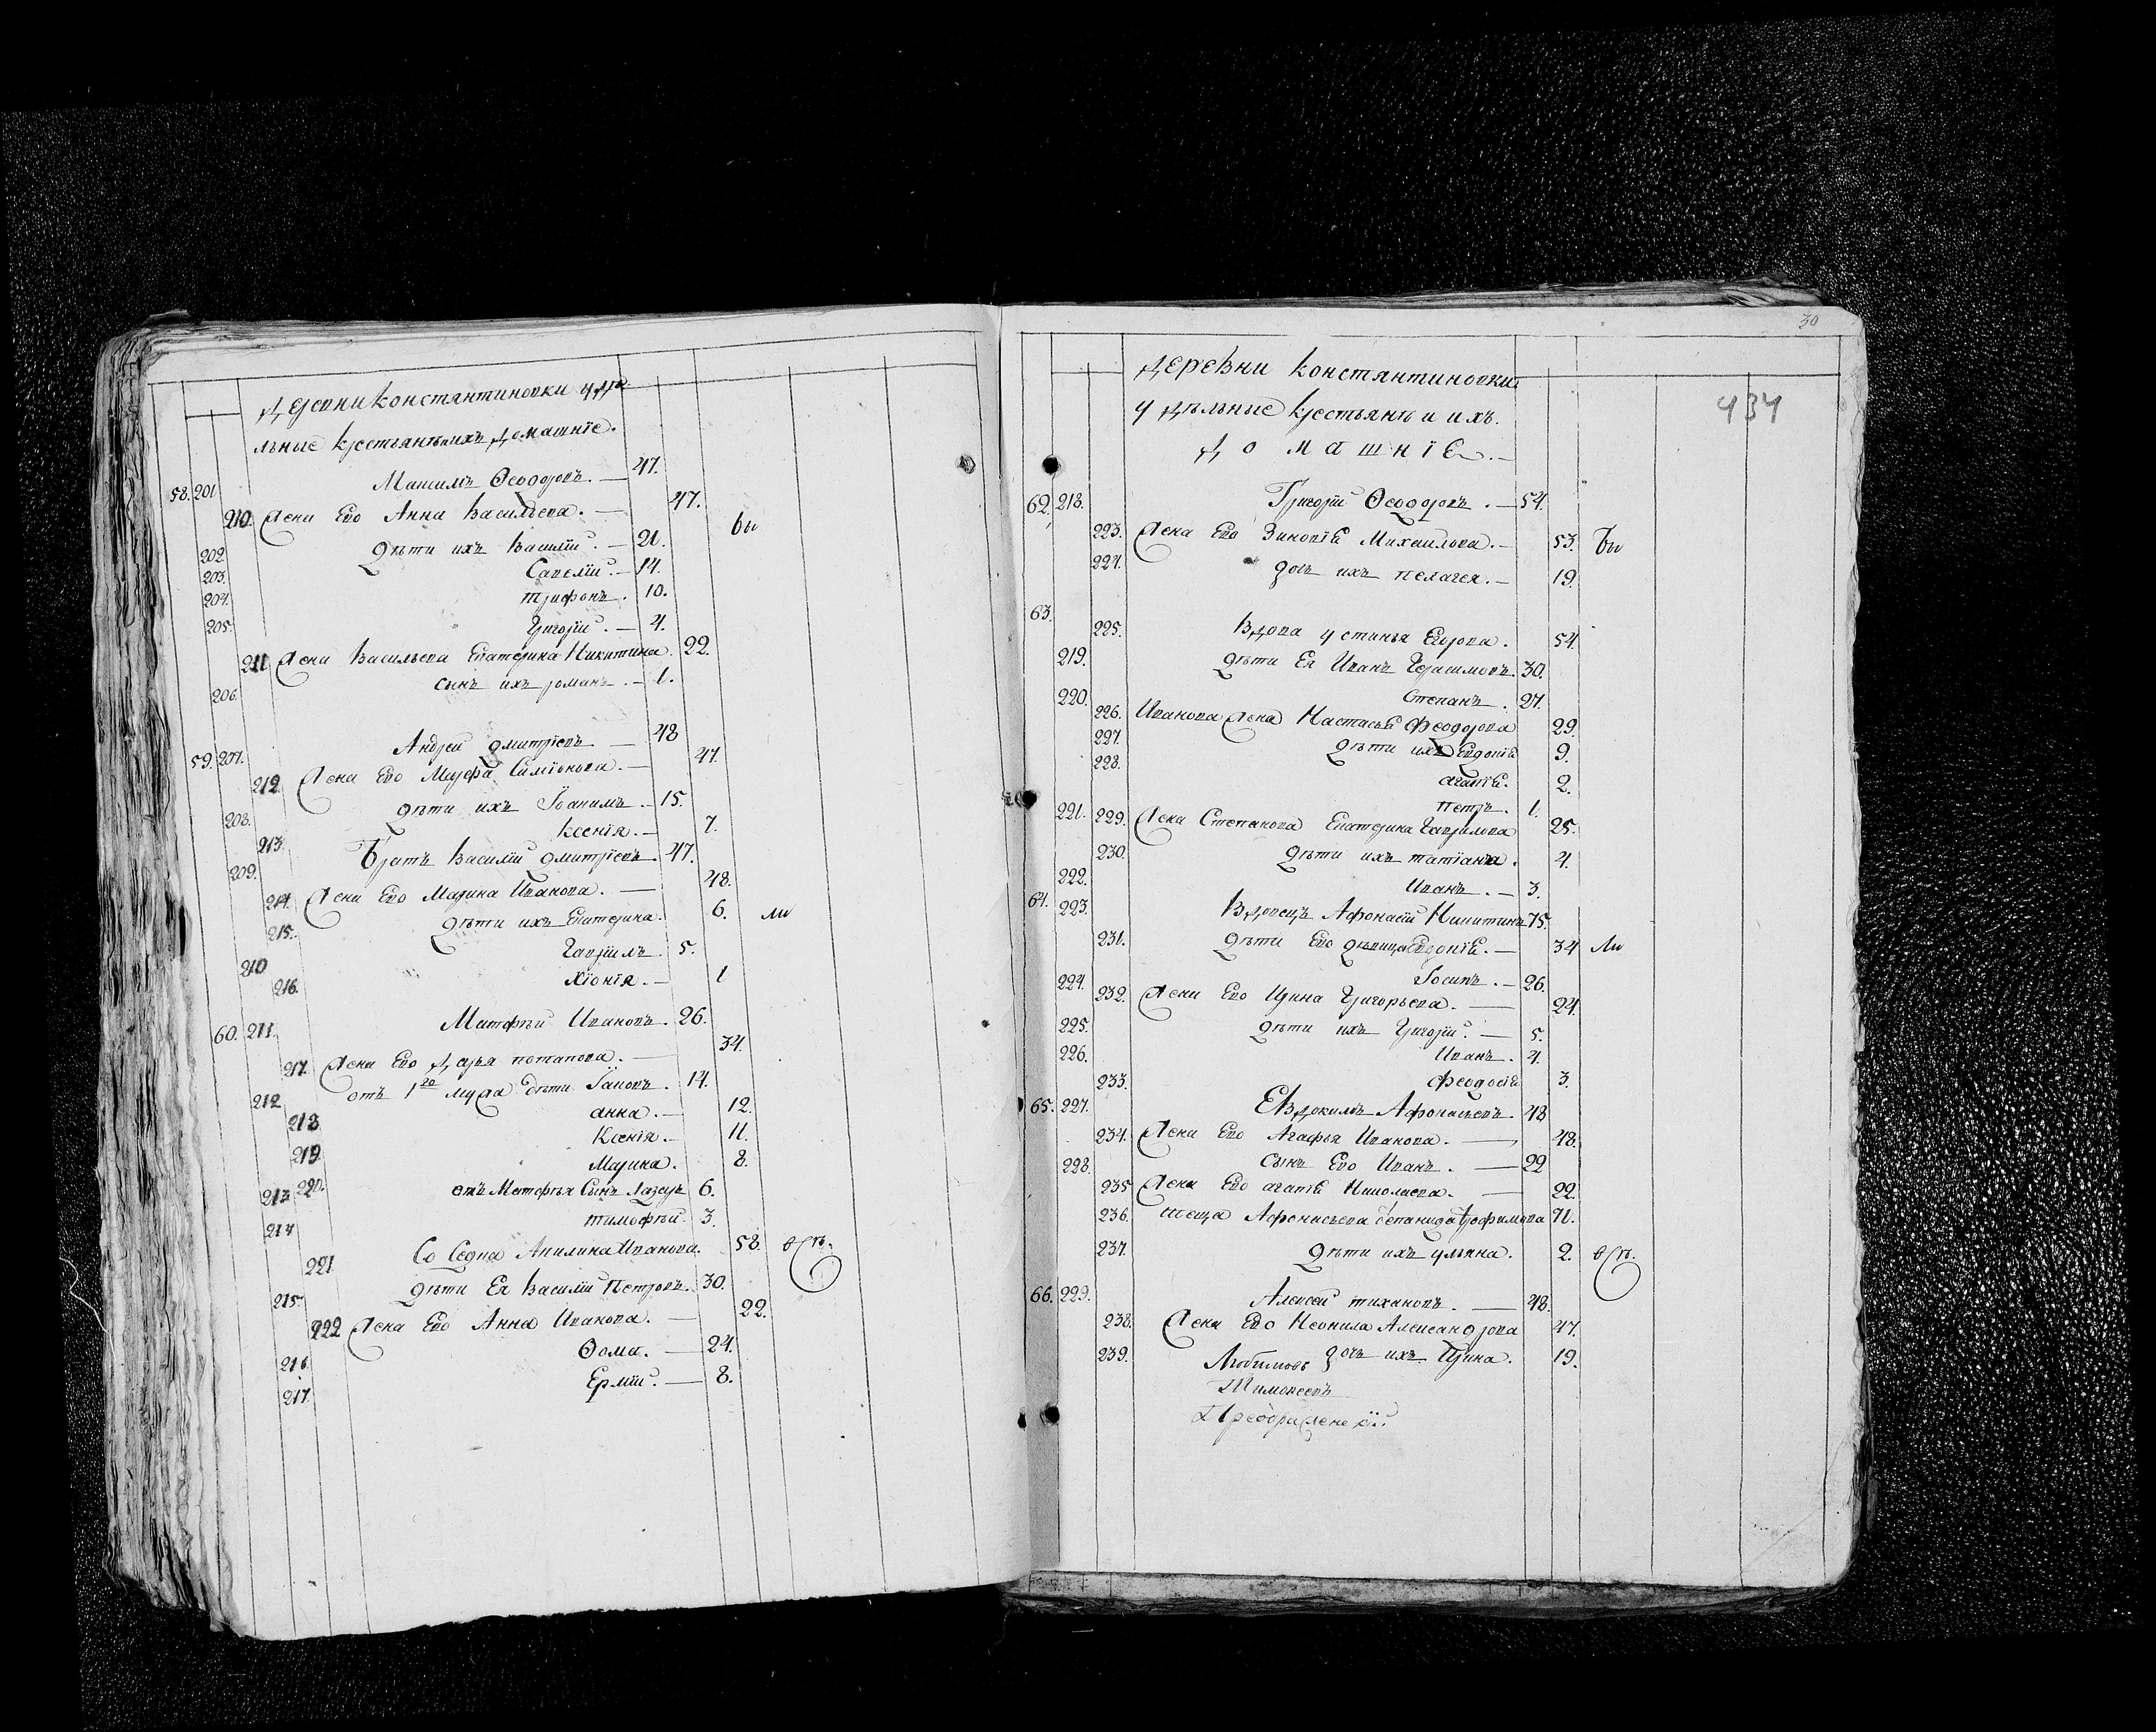 деревни константиновки удѣ
льные крестьянѣ и ихъ домашнїе.
58. 201 Максимъ Ѳеодоровъ. — 47.
210. Жена Ево Анна Васильева. — 47.
202. дѣти ихъ Василїй. — 21. вы
203. Савелїй. — 14.
204. трифонъ. 10.
205. Григорїй. — 4.
211 Жена Васильева Екатерина Никитина. 22.
206. сынъ ихъ романъ. — 1.
59. 207. Андрей дмитрїевъ — 48
212 Жена Ево Марфа Симїонова. — 47.
208. дѣти ихъ Іоакимъ. — 15.
213. ксенїя. — 7.
209. Братъ Василїй дмитрїевъ. 47.
214. Жена Ево Марина Иванова. — 48.
215. дѣти ихъ Екатерина. 6. ли
210 Гаврїилъ 5.
216. хїонїя. — 1
60. 211. Матфѣй Ивановъ. 26.
217. Жена Ево дарья потапова. — 34.
212 отъ 1го мужа дѣти Іаковъ. 14.
218 анна. — 12.
219 Ксенїя. — 11.
220. Марина. 8.
213 отъ Матфѣя Сынъ Лазарь 6.
214 тимофѣй. 3.
221 Со Седка Акилина Иванова. 58.
215. дѣти Ея Василїй Петровъ. 30.
222 Жена Ево Анна Иванова. — 22.
216 Ѳома. — 24.
217. Ермїй. — 8.
30
434
деревни константиновки
удѣльные крестьянѣ и ихъ.
домашнїе. —
62. 218. Григорїй Ѳеодоровъ. — 54.
223. Жена Ево Зиновїѣ Михаилова. — 53. вы
224. дочь ихъ пелагея. — 19.
63. 225. Вдова устинья Егорова. 54.
219. дѣти Ея Иванъ Герасимовъ. 30.
220. Степанъ. 27.
226. Иванова Жена Настасьѣ Феодорова 29.
227. дѣти ихъ Евдокїѣ 9.
228. агапїѣ. 2.
221. Петръ. 1.
229. Жена Степанова Екатерина Гаврилова 25.
230. дѣти ихъ татїана. 4.
222. Иванъ. — 3.
64. 223. Вдовецъ Афонасїй Никитинъ 75.
231. дѣти Ево дѣвица Евдокїѣ. — 34 ли
224. Іосипъ. — 26.
232. Жена Ево Ирина Григорьева. — 24.
225. дѣти ихъ Григорїй. — 5.
226. Иванъ. 4.
233. Феодосїѣ 3.
65. 227. Евдокимъ Афонасьевъ. 48
234. Жена Ево Агафья Иванова. — 48.
228. сынъ Ево Иванъ. — 22
235 Жена Ево агапїѣ Николаева. — 22.
236. теща Афонасьева степанида трофимова 71.
237. дѣти ихъ ульяна. 2.
66. 229. Алексей тихановъ. — 48.
238. Жена Ево Неонила Александрова 47.
239. дочь ихъ Ирина. 19.
Любимовъ
Тимофеевъ
Преображенскїй